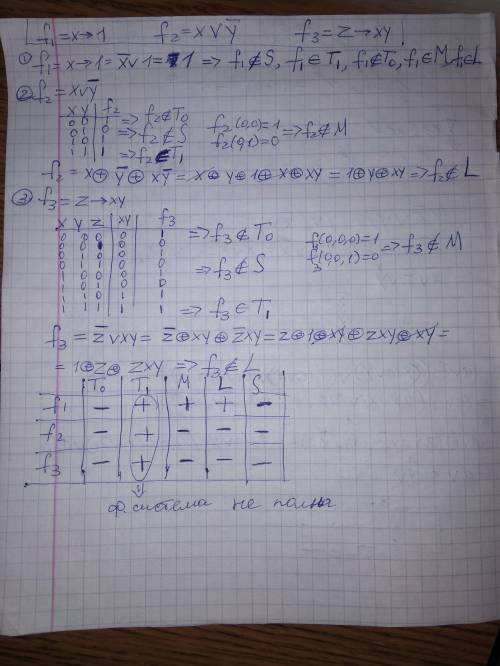 f₁ = x→1 f₂ = x∨ȳ f₃ = z→xy
① f₁ = x→1 = x̄∨1 = 1 => f₁∉S, f₁∈T₁, f₁∉T₀, f₁∈M, f₁∈L
② f₂ = x∨ȳ
x y | f₂
0 0 | 1 => f₂∉T₀
0 1 | 0 => f₂∉S
1 0 | 1
1 1 | 1 => f₂∈T₁
f₂(0,0)=1
f₂(0,1)=0 => f₂∉M
f₂ = x⊕ȳ⊕xȳ = x⊕y⊕1⊕x⊕xy = 1⊕y⊕xy => f₂∉L
③ f₃ = z→xy
x y z | xy | f₃
0 0 0 | 0 | 1 => f₃∉T₀
0 0 1 | 0 | 0
0 1 0 | 0 | 1
0 1 1 | 0 | 0 => f₃∉S
1 0 0 | 0 | 1
1 0 1 | 0 | 0
1 1 0 | 1 | 1
1 1 1 | 1 | 1 => f₃∈T₁
f₃(0,0,0)=1
f₃(0,0,1)=0 => f₃∉M
f₃ = z̄∨xy = z̄⊕xy⊕z̄xy = z⊕1⊕xy⊕zxy⊕xy =
= 1⊕z⊕zxy => f₃∉L
T₀ | T₁ | M | L | S
f₁ | − | + | + | + | −
f₂ | − | + | − | − | −
f₃ | − | + | − | − | −
⇓
система не полна